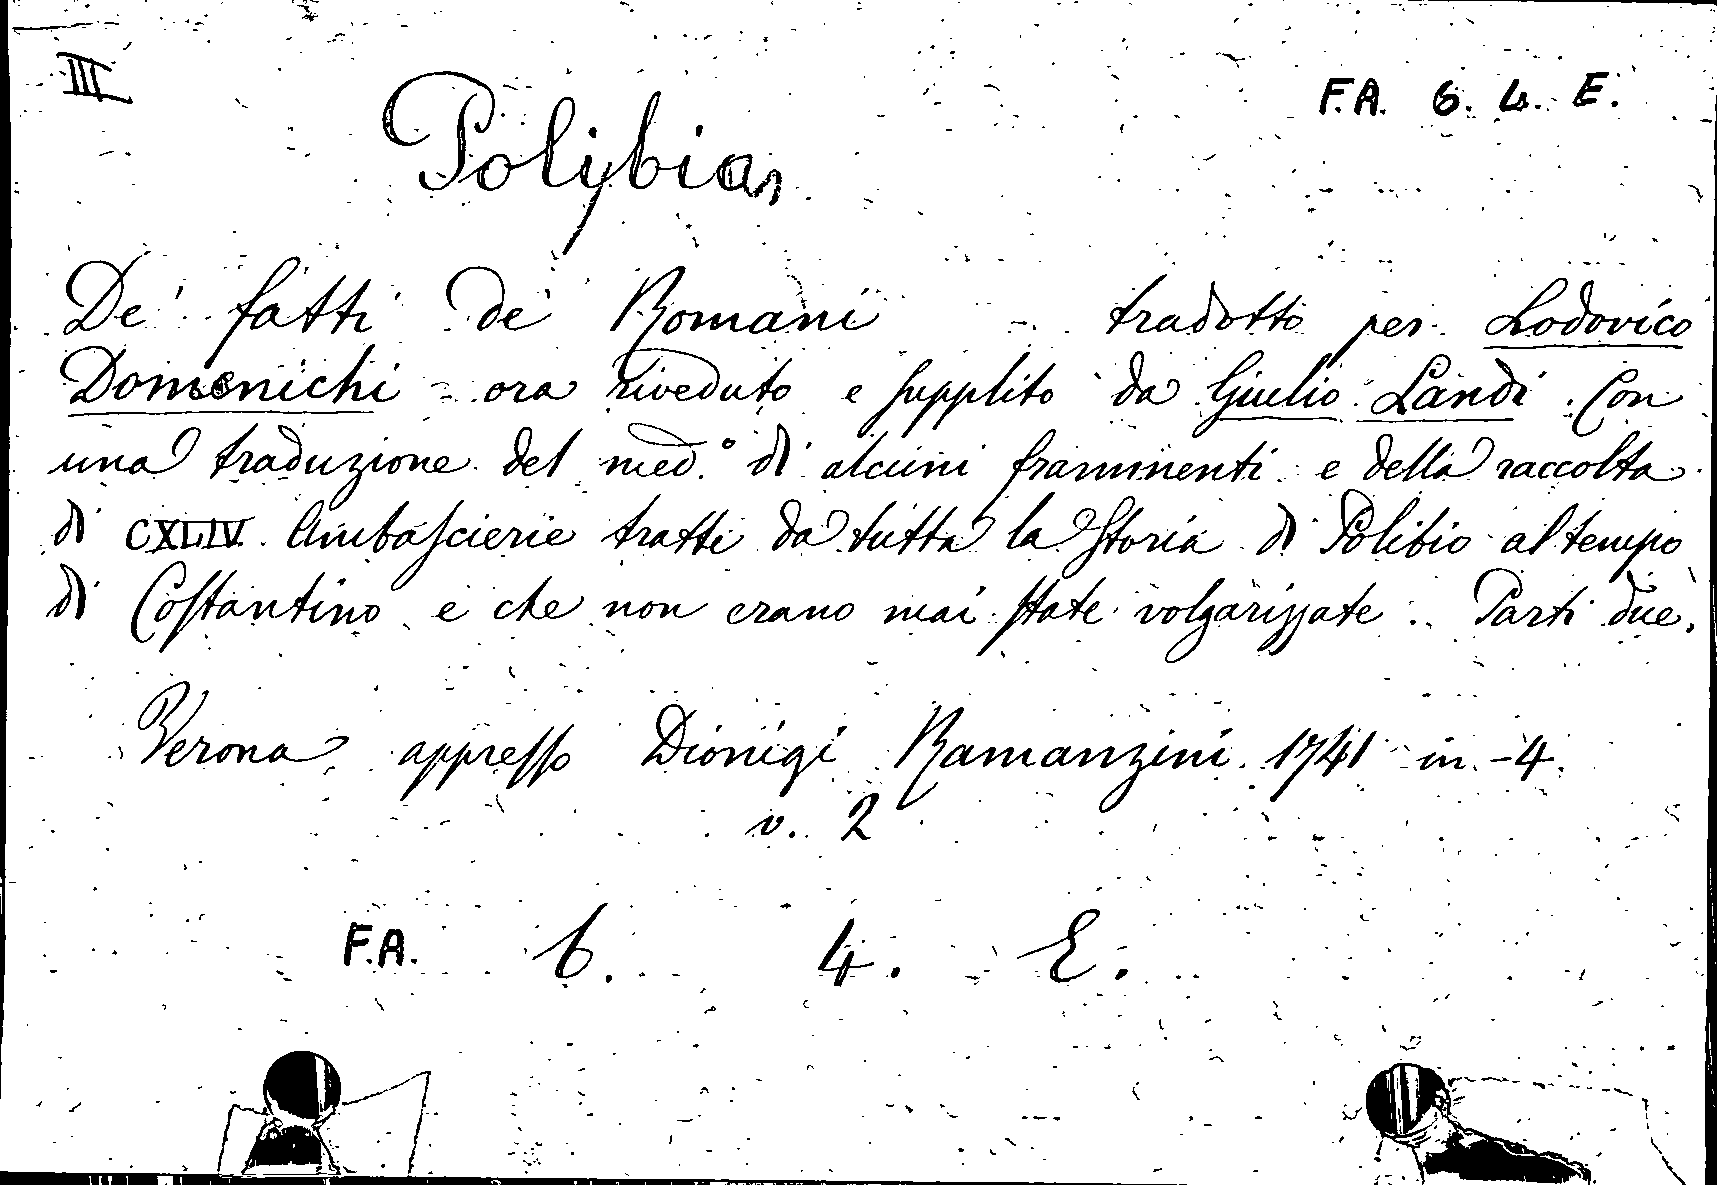 III
F.A. 6. 4. E.
Polybius
De' fatti de' Romani - tradotto per Lodovico
Domenichi - ora riveduto e supplito da Giulio Landi. Con
una traduzione del med.° di alcuni frammenti e della raccolta
di CXLIV Ambascierie tratti da tutta la Storia di Polibio al tempo
di Costantino e che non erano mai state volgarizzate. Parti due.
Verona appresso Dionigi Ramanzini 1741 in-4.
v. 2
F.A. 6. 4. E.